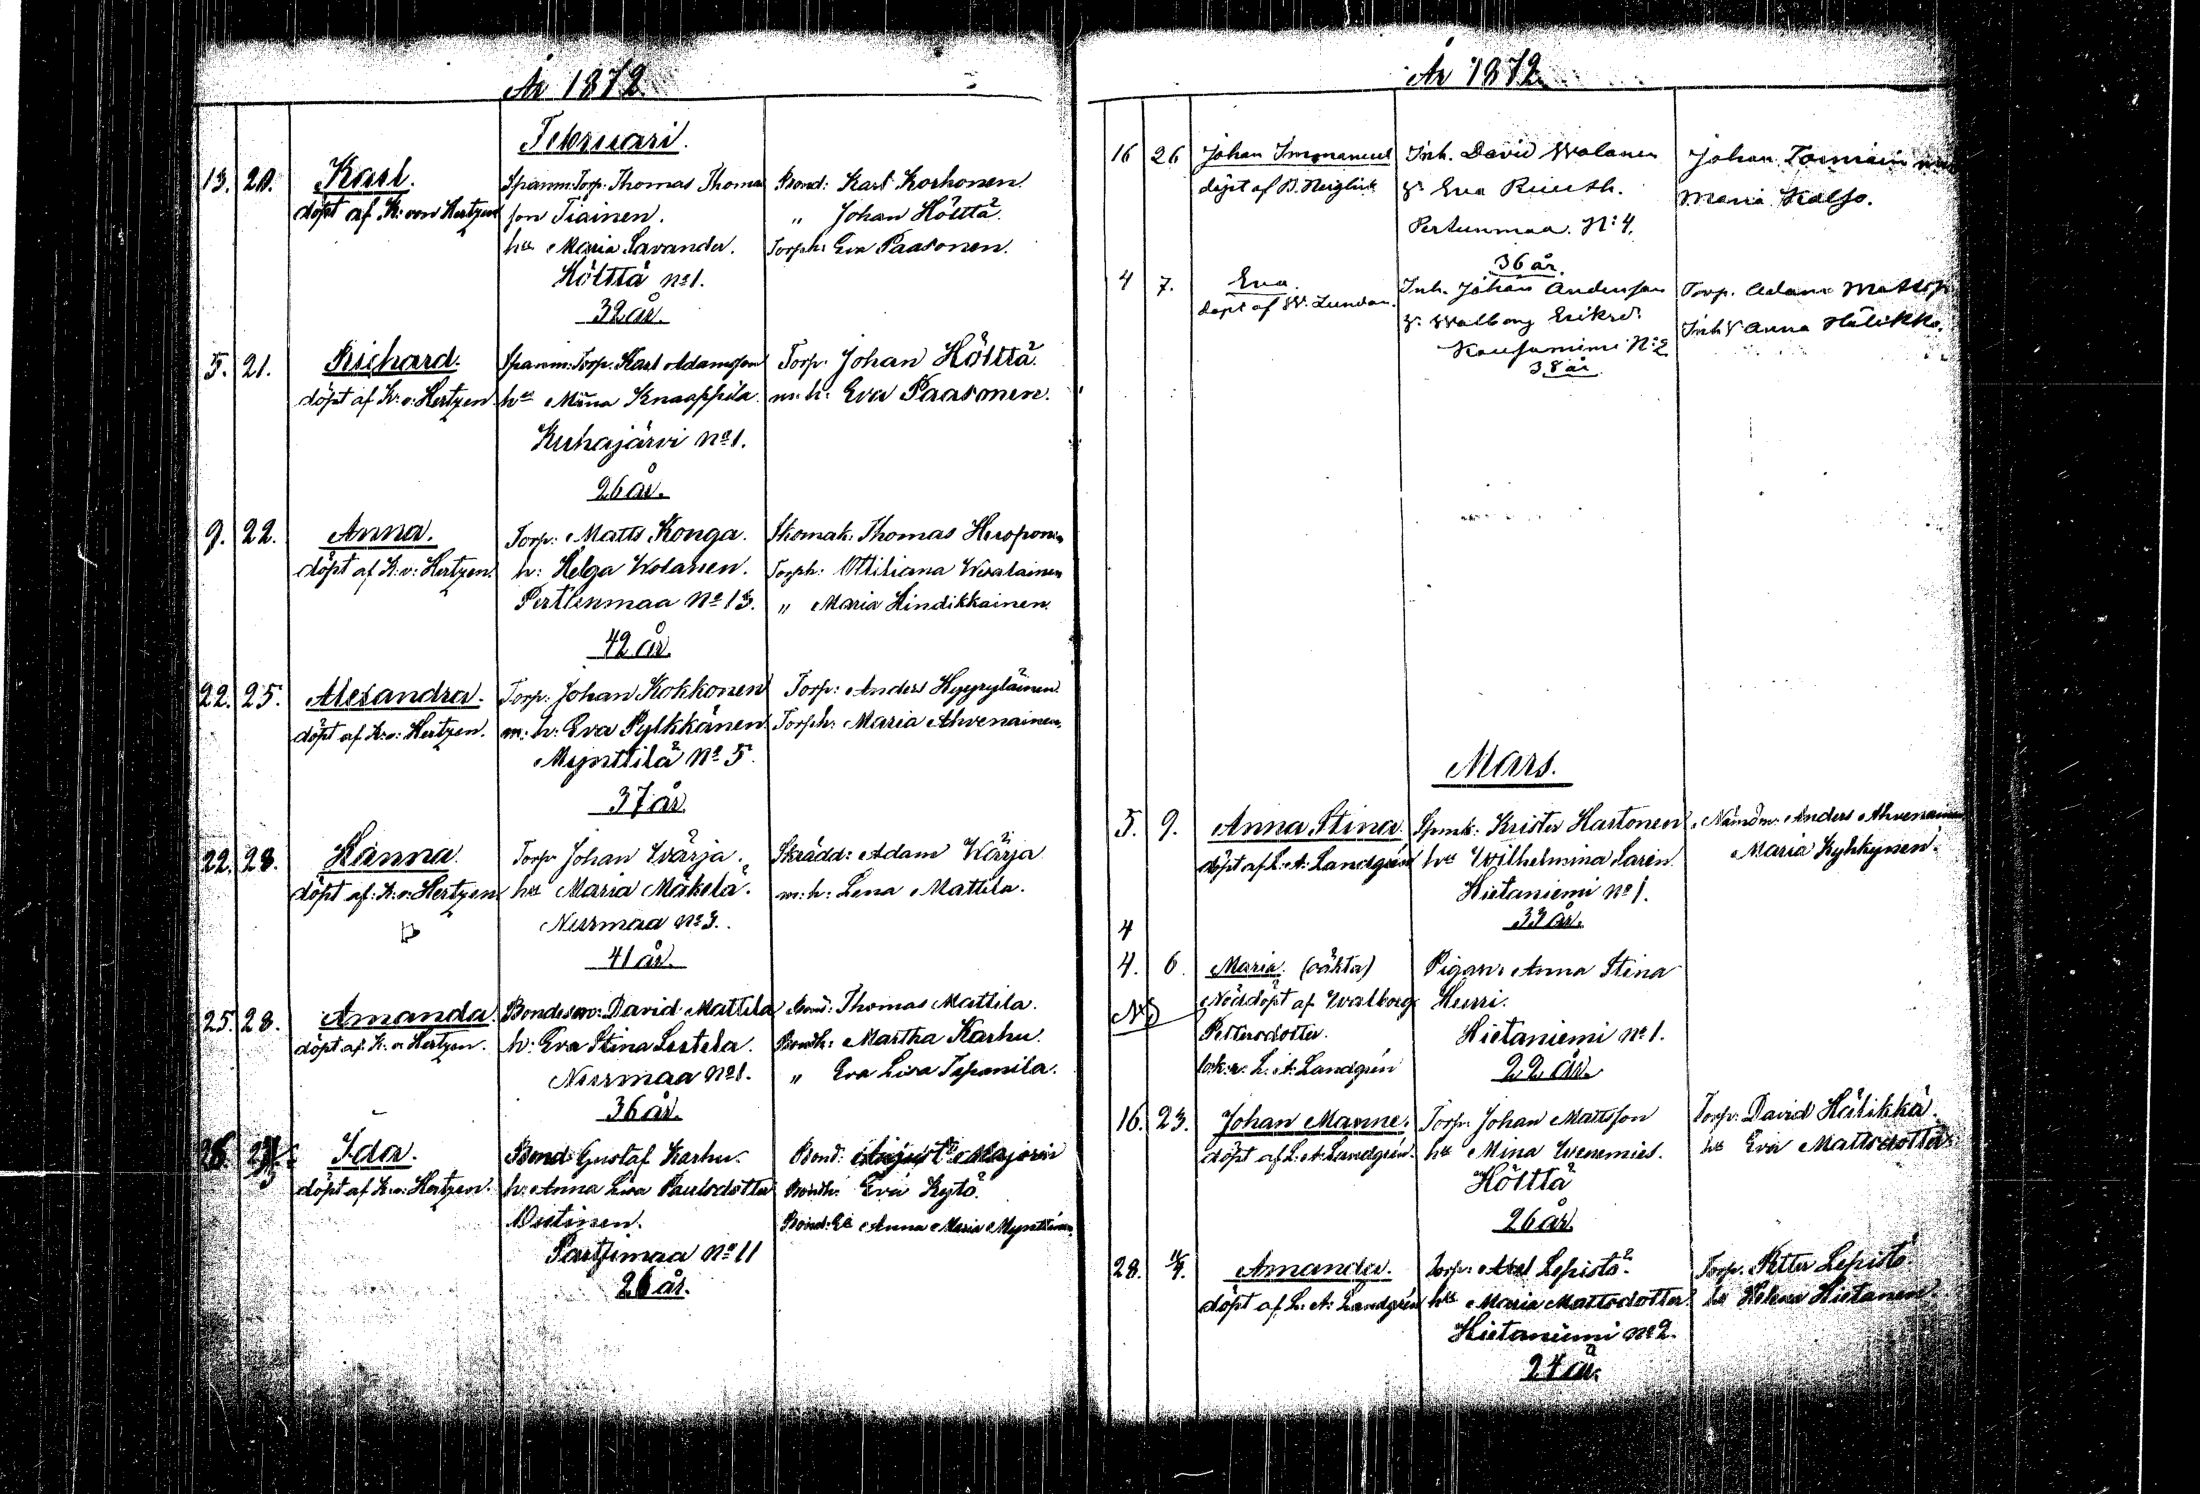 År 1872.
Februari.
13. 20. Karl. Spanm: Torp. Thomas Thomas Bond: Karl Korhonen.
döpt af K: von Hertzen son Tiainen. " Johan Hölttä.
hu Maria Lavander. Torph: Eva Paasonen.
Hölttä No 1.
32 år.
5. 21. Richard. Spanm: Torp. Karl Adamsson Torp: Johan Hölttä.
döpt af K: v: Hertzen. hu Mina Knaappila. m: h: Eva Paasonen.
Kuhajärvi No 1.
26 år.
9. 22. Anna. Torp: Matts Konga. Skomak: Thomas
döpt af K: v: Hertzen. h: Helga Wolanen. Torph: Ottiliana
Pertunmaa No 13. " Maria Hindikkainen.
42 år.
22. 25. Alexandra. Torp: Johan Kokkonen Torp: Anders Hyyryläinen
döpt af K: v: Hertzen. m: h: Eva Pylkkänen. Torph: Maria Ahvenainen.
Mynttilä No 5.
37 år.
22. 28. Hanna. Torp Johan Wärja. Skrädd: Adam Wärja
döpt af: K: v: Hertzen hu Maria Mäkelä. m: h: Lena Mattila.
Nurmaa No 3.
41 år.
25. 28. Amanda. Bondeson: David Mattila Bond: Thomas Mattila.
döpt af K: v: Hertzen. h: Eva Stina Lestela. Bondh: Martha Karhu.
Nurmaa No 1. " Eva Lisa Tapanila.
36 år.
Ida. Bond: Gustaf Karhu. Bond: Majorin
döpt af K: v: Hertzen. h: Anna Lisa Paulsdotter Bondh: Eva Kytö.
Outinen. Anna Maria
Partsimaa No 11
26 år.
År 1872
16 26 Johan Immanuel Inh. David Wolanen Johan
döpt af Eva Maria Kalso.
Pertunmaa. N: 4.
36 år.
4 7. Eva. Inh. Johan Andersson Torp. Adam
döpt af W. Lundan. Walborg Eriksd. Inh Anna Hälikkä.
N: 2
38 år.
Mars.
5. 9. Anna Stina. Krister Hartonen Nämdm. Anders Ahvenainen
döpt af L: A: Landgrén hu Wilhelmina Sarén. Maria Kyhkynen.
Hietaniemi No 1.
33 år.
4
4. 6. Maria. (oäkta) Pigan: Anna Stina
Nöddöpt af Walborg Hurri.
Pettersdotter. Hietaniemi No 1.
L. A. Landgrén 22 år.
16. 23. Johan Manne. Torp. Johan Mattsson Torp: David Hälikkä.
döpt af L. A: Landgrén. hu Mina Wenemies. hu Eva Mattsdotter
Hölttä
26 år.
28. 11/4. Amanda. Torp: Abel Lepistö. Torp. Petter Lepistö.
döpt af L. A: Landgrén hu Maria Mattsdotter hu Helena Hietanen.
Hietaniemi No 2.
24 år.